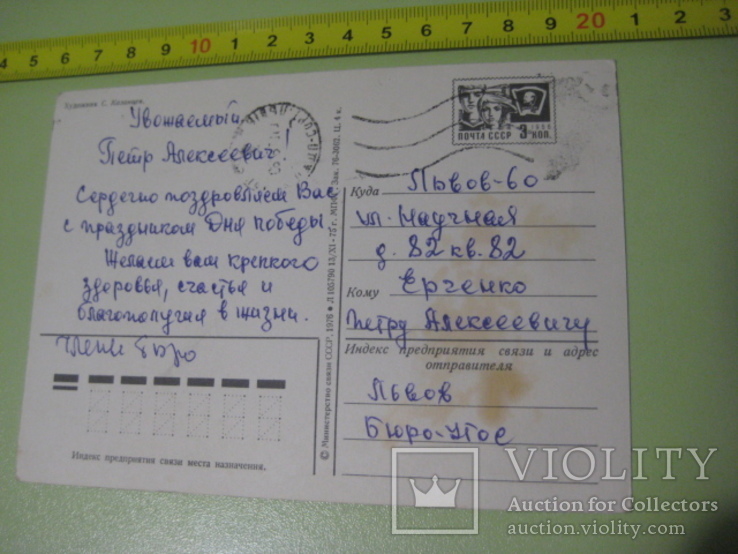 4 5 6 7 8 9 10 1 2 3 4 5 6 7 8 9 20 1 2 3
Художник С.
Уважаемый
Петр Алексеевич!
Сердечно поздровляем Вас
с праздником Дня победы
Желаем вам крепкого
здоровья, счастья и
благополучия в жизни.
Члены бюро
Индекс предприятия связи места назначения.
© Министерство связи СССР. 1976 Л 105790 13/XI-75 г. Зак. 76-3002. Ц. 4 к.
ПОЧТА СССР 3 КОП.
1966
Куда Львов-60
ул. Научная
д. 82 кв. 82
Кому Ерченко
Петру Алексеевичу
Индекс предприятия связи и адрес
отправителя
Львов
Бюро-УТОС
VIOLITY
Auction for Collectors
auction.violity.com